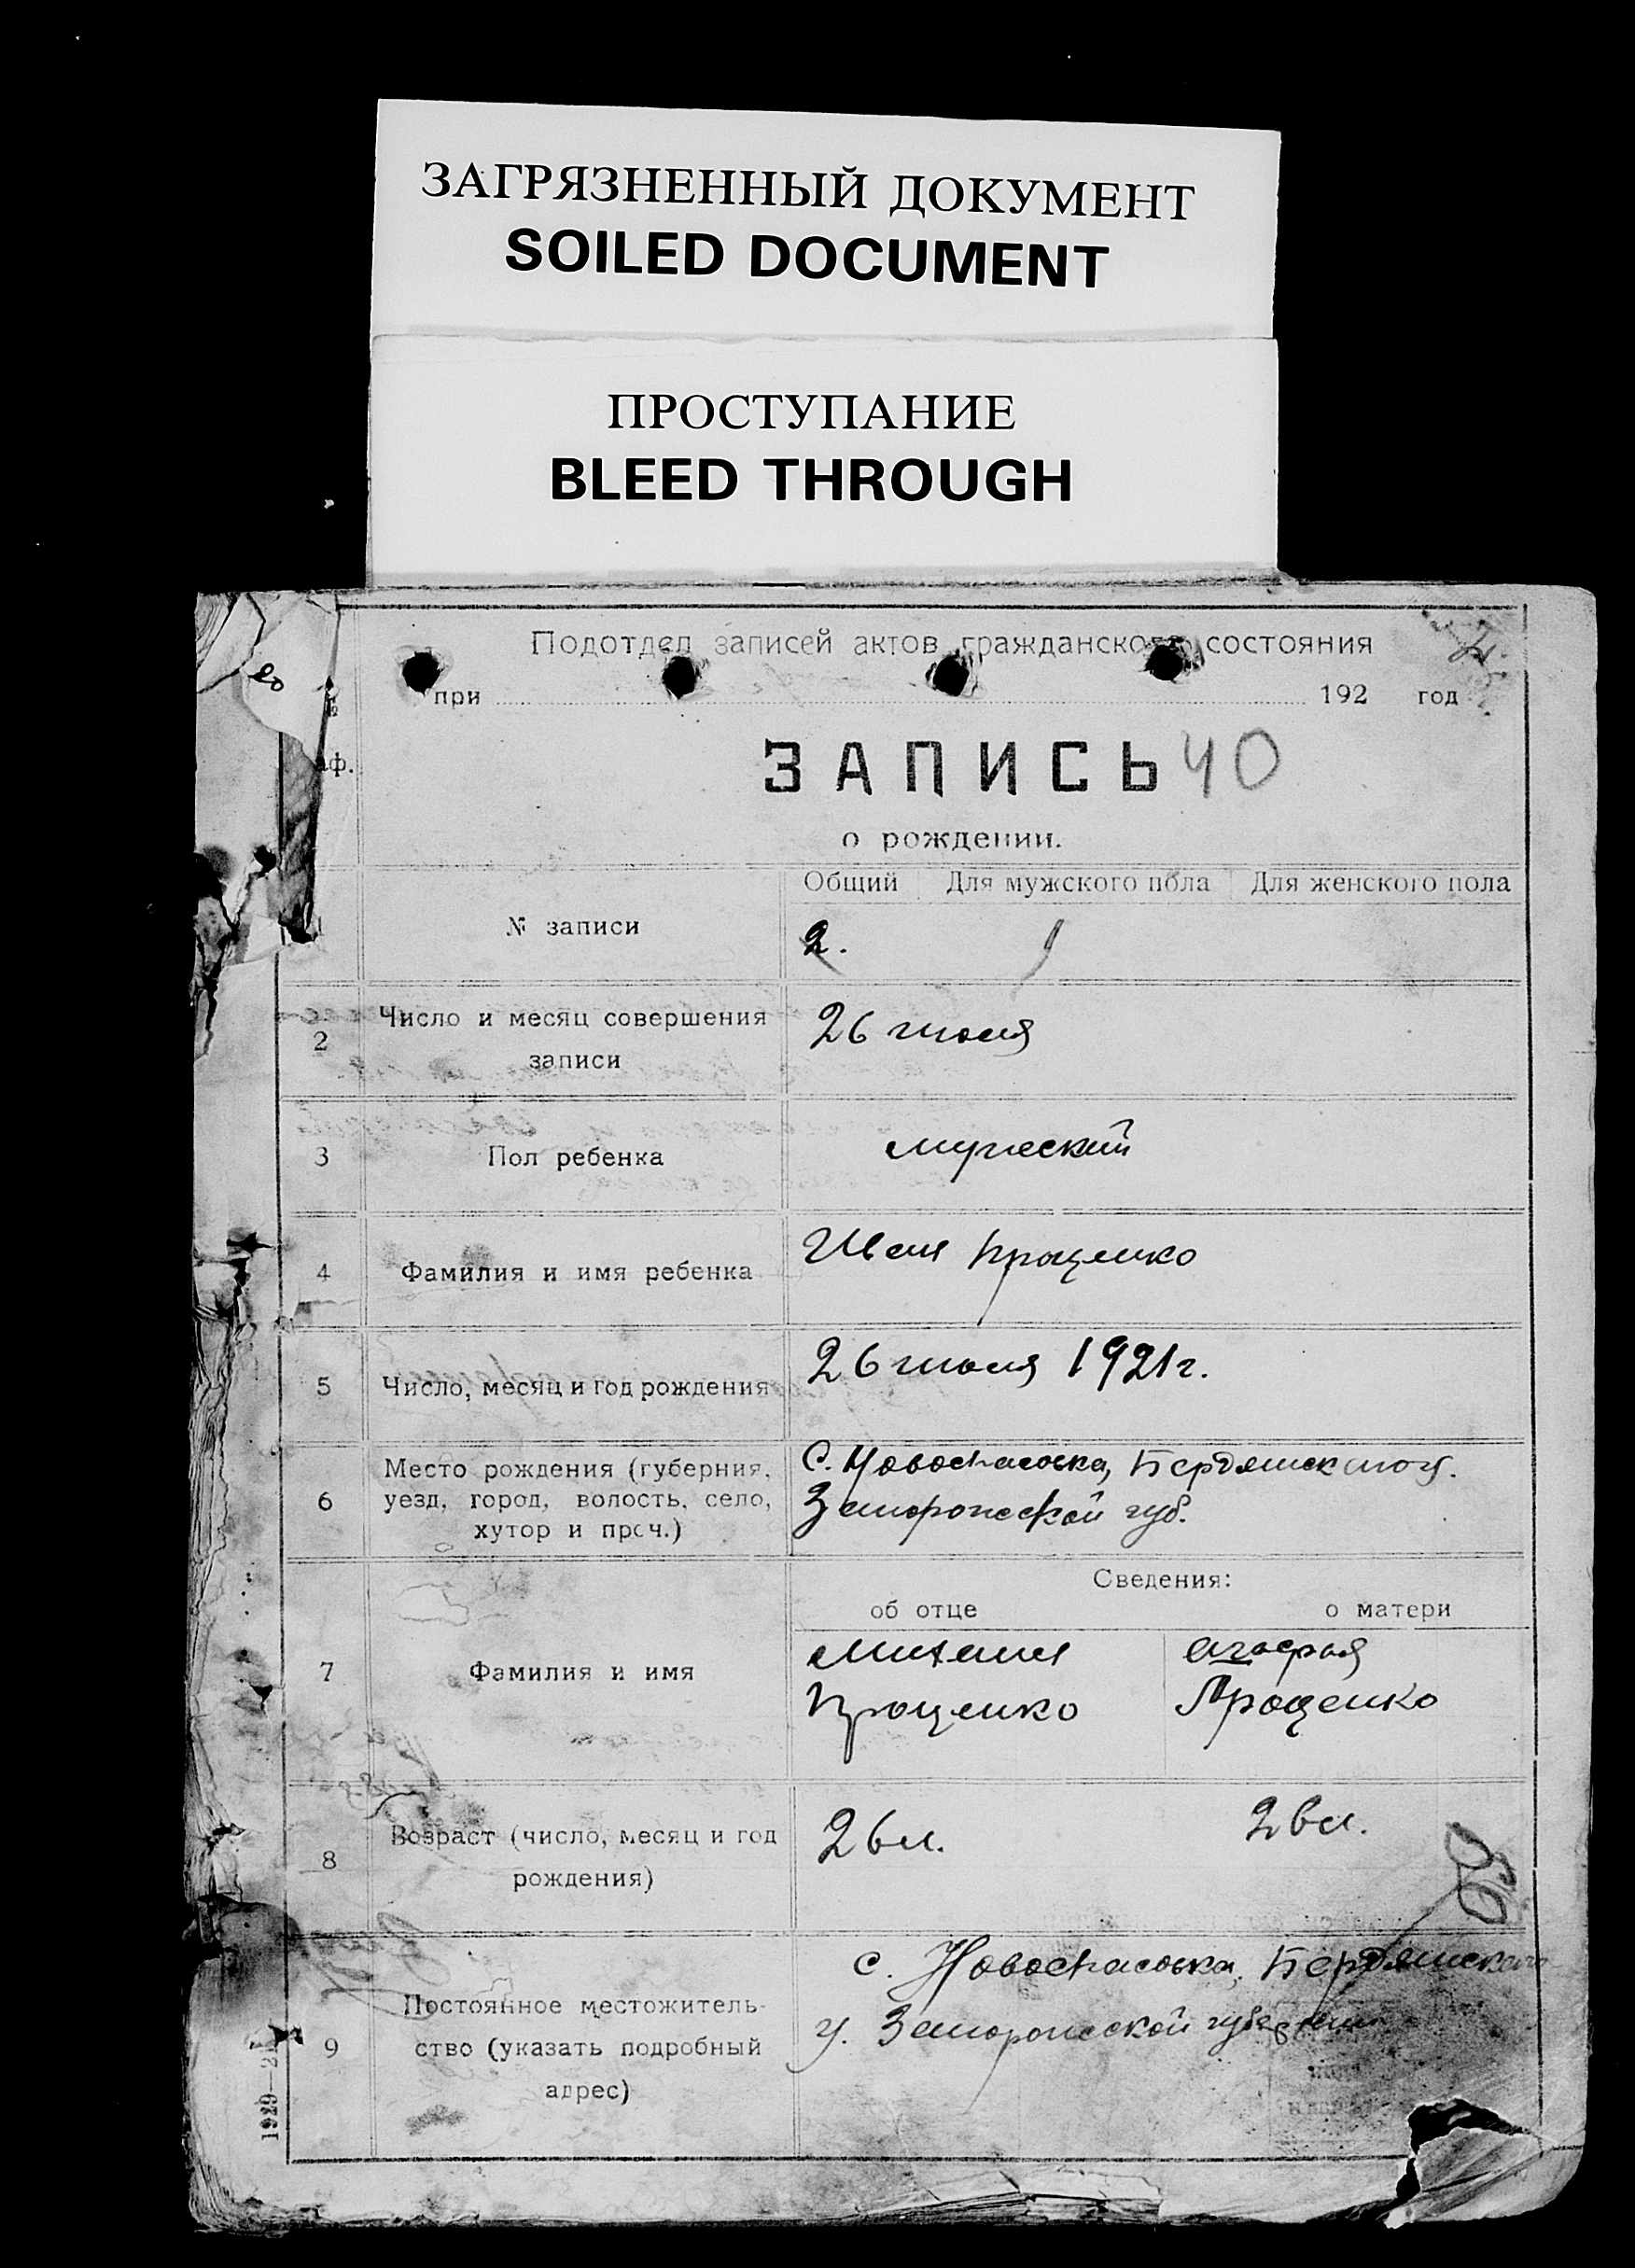 ЗАГРЯЗНЕННЫЙ ДОКУМЕНТ
SOILED DOCUMENT
ПРОСТУПАНИЕ
BLEED THROUGH
Подотдел записей актов гражданского состояния
при 192 год
ЗАПИСЬ 40
о рождении.
Общий Для мужского пола Для женского пола
№ записи 2. 1
2 Число и месяц совершения
записи
26 июля
3 Пол ребенка мужеский
4 Фамилия и имя ребенка Иван Проценко
5 Число, месяц и год рождения 26 июля 1921 г.
6 Место рождения (губерния,
уезд, город, волость, село,
хутор и проч.)
с. Новоспасовка, Бердянского у.
Запорожской губ.
Сведения:
об отце о матери
7 Фамилия и имя
Михаил
Проценко
Агафья
Проценко
8 Возраст (число, месяц и год
рождения)
26 л. 26 л.
9 Постоянное местожитель-
ство (указать подробный
адрес)
с. Новоспасовка, Бердянского
у. Запорожской губернии